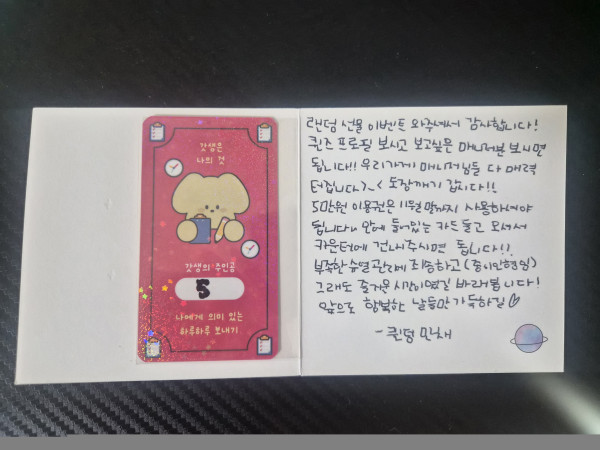 갓생은
나의 것
갓생의 주인공
5
나에게 의미 있는
하루하루 보내기
랜덤 선물 이벤트 와주셔서 감사합니다!
퀸즈 프로필 보시고 보고싶은 매니저분 보시면
됩니다!! 우리가게 매니저님들 다 매력
터집니다>_< 도장깨기 갑시다!!
5만원 이용권은 11월 말까지 사용하셔야
됩니다 안에 들어있는 카드 들고 오셔서
카운터에 건네주시면 됩니다!!
부족한 슈얼관리에 죄송하고
그래도 즐거운 시간이였길 바래봅니다!
앞으로 행복한 날들만 가득하길♡
- 퀸덤 민채